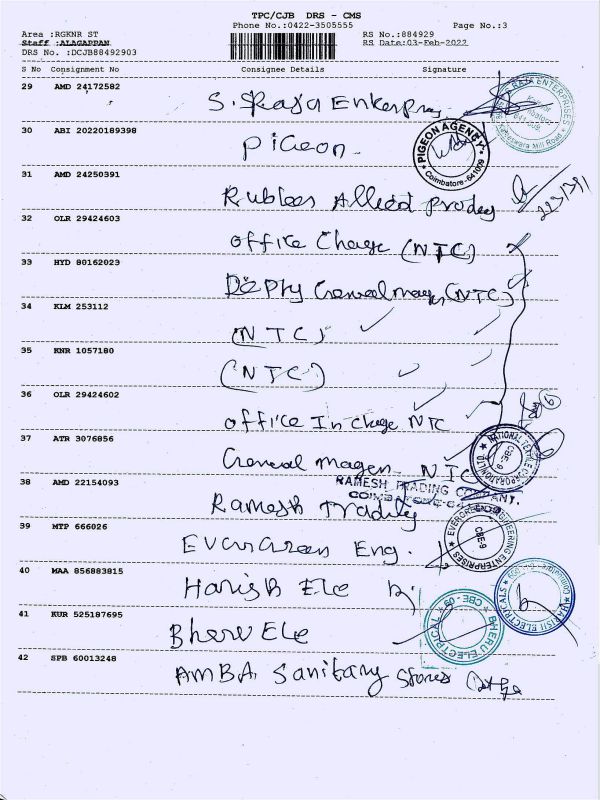 TPC/CJB DRS - CMS
Phone No.:0422-3505555 Page No.:3
Area :RGKNR ST RS No.:884929
Staff :ALAGAPPAN RS Date:03-Feb-2022
DRS No. :DCJB88492903
S No Consignment No Consignee Details Signature
29 AMD 24172582
S. Raja Enterprises
30 ABI 20220189398
Pigeon
PIGEON AGENCY Coimbatore-641009
31 AMD 24250391
Rubbers Allied
32 OLR 29424603
office Charge (NTC)
33 HYD 80162023
(NTC)
34 KLM 253112
(NTC)
35 KNR 1057180
(NTC)
36 OLR 29424602
office In charge NTC
37 ATR 3076856
NTC
NATIONAL TEXTILE CORPORATION LTD CBE-9
38 AMD 22154093
RAMESH TRADING COMPANY.
Ramesh Trading
39 MTP 666026
Evergreen Eng.
EVERGREEN ENGINEERING ENTERPRISES CBE-9
40 MAA 856883815
Harish Ele
HARISH ELECTRICALS
41 KUR 525187695
Bheru Ele
BHERU ELECTRICAL CBE - 09
42 SPB 60013248
AMBA Sanitary Stores